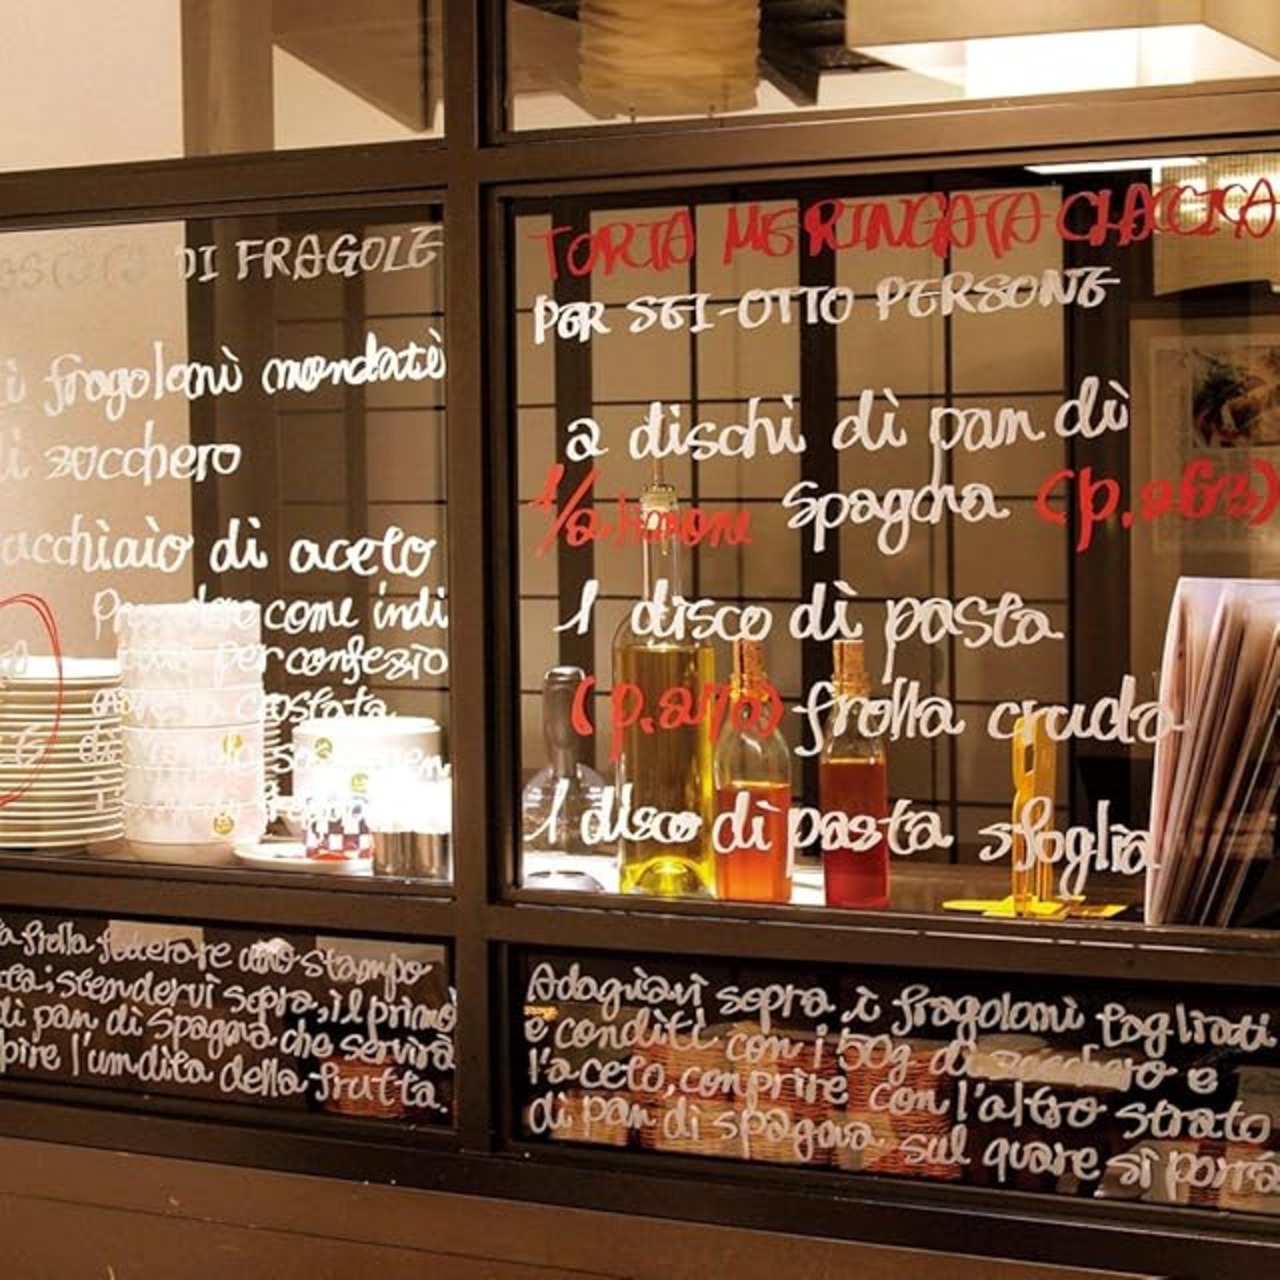 DI FRAGOLE
i fragoloni mondati
di zucchero
acchiaio di aceto
Prendere come indi
per confezio
crostata
TORTA MERINGATA CLACCICA
PER SEI-OTTO PERSONE
a dischi di pan di
1/a limone spagna (p.263)
1 disco di pasta
frolla cruda
1 disco di pasta sfoglia
a frolla foderare uno stampo
stendervi sopra, il primo
di pan di Spagna che servirà
pire l'umdita della frutta.
Adagiavi sopra i fragoloni tagliati
e conditi con i 50g di zucchero e
l'aceto, conprire con l'altro strato
di pan di spagna sul quare si porrà